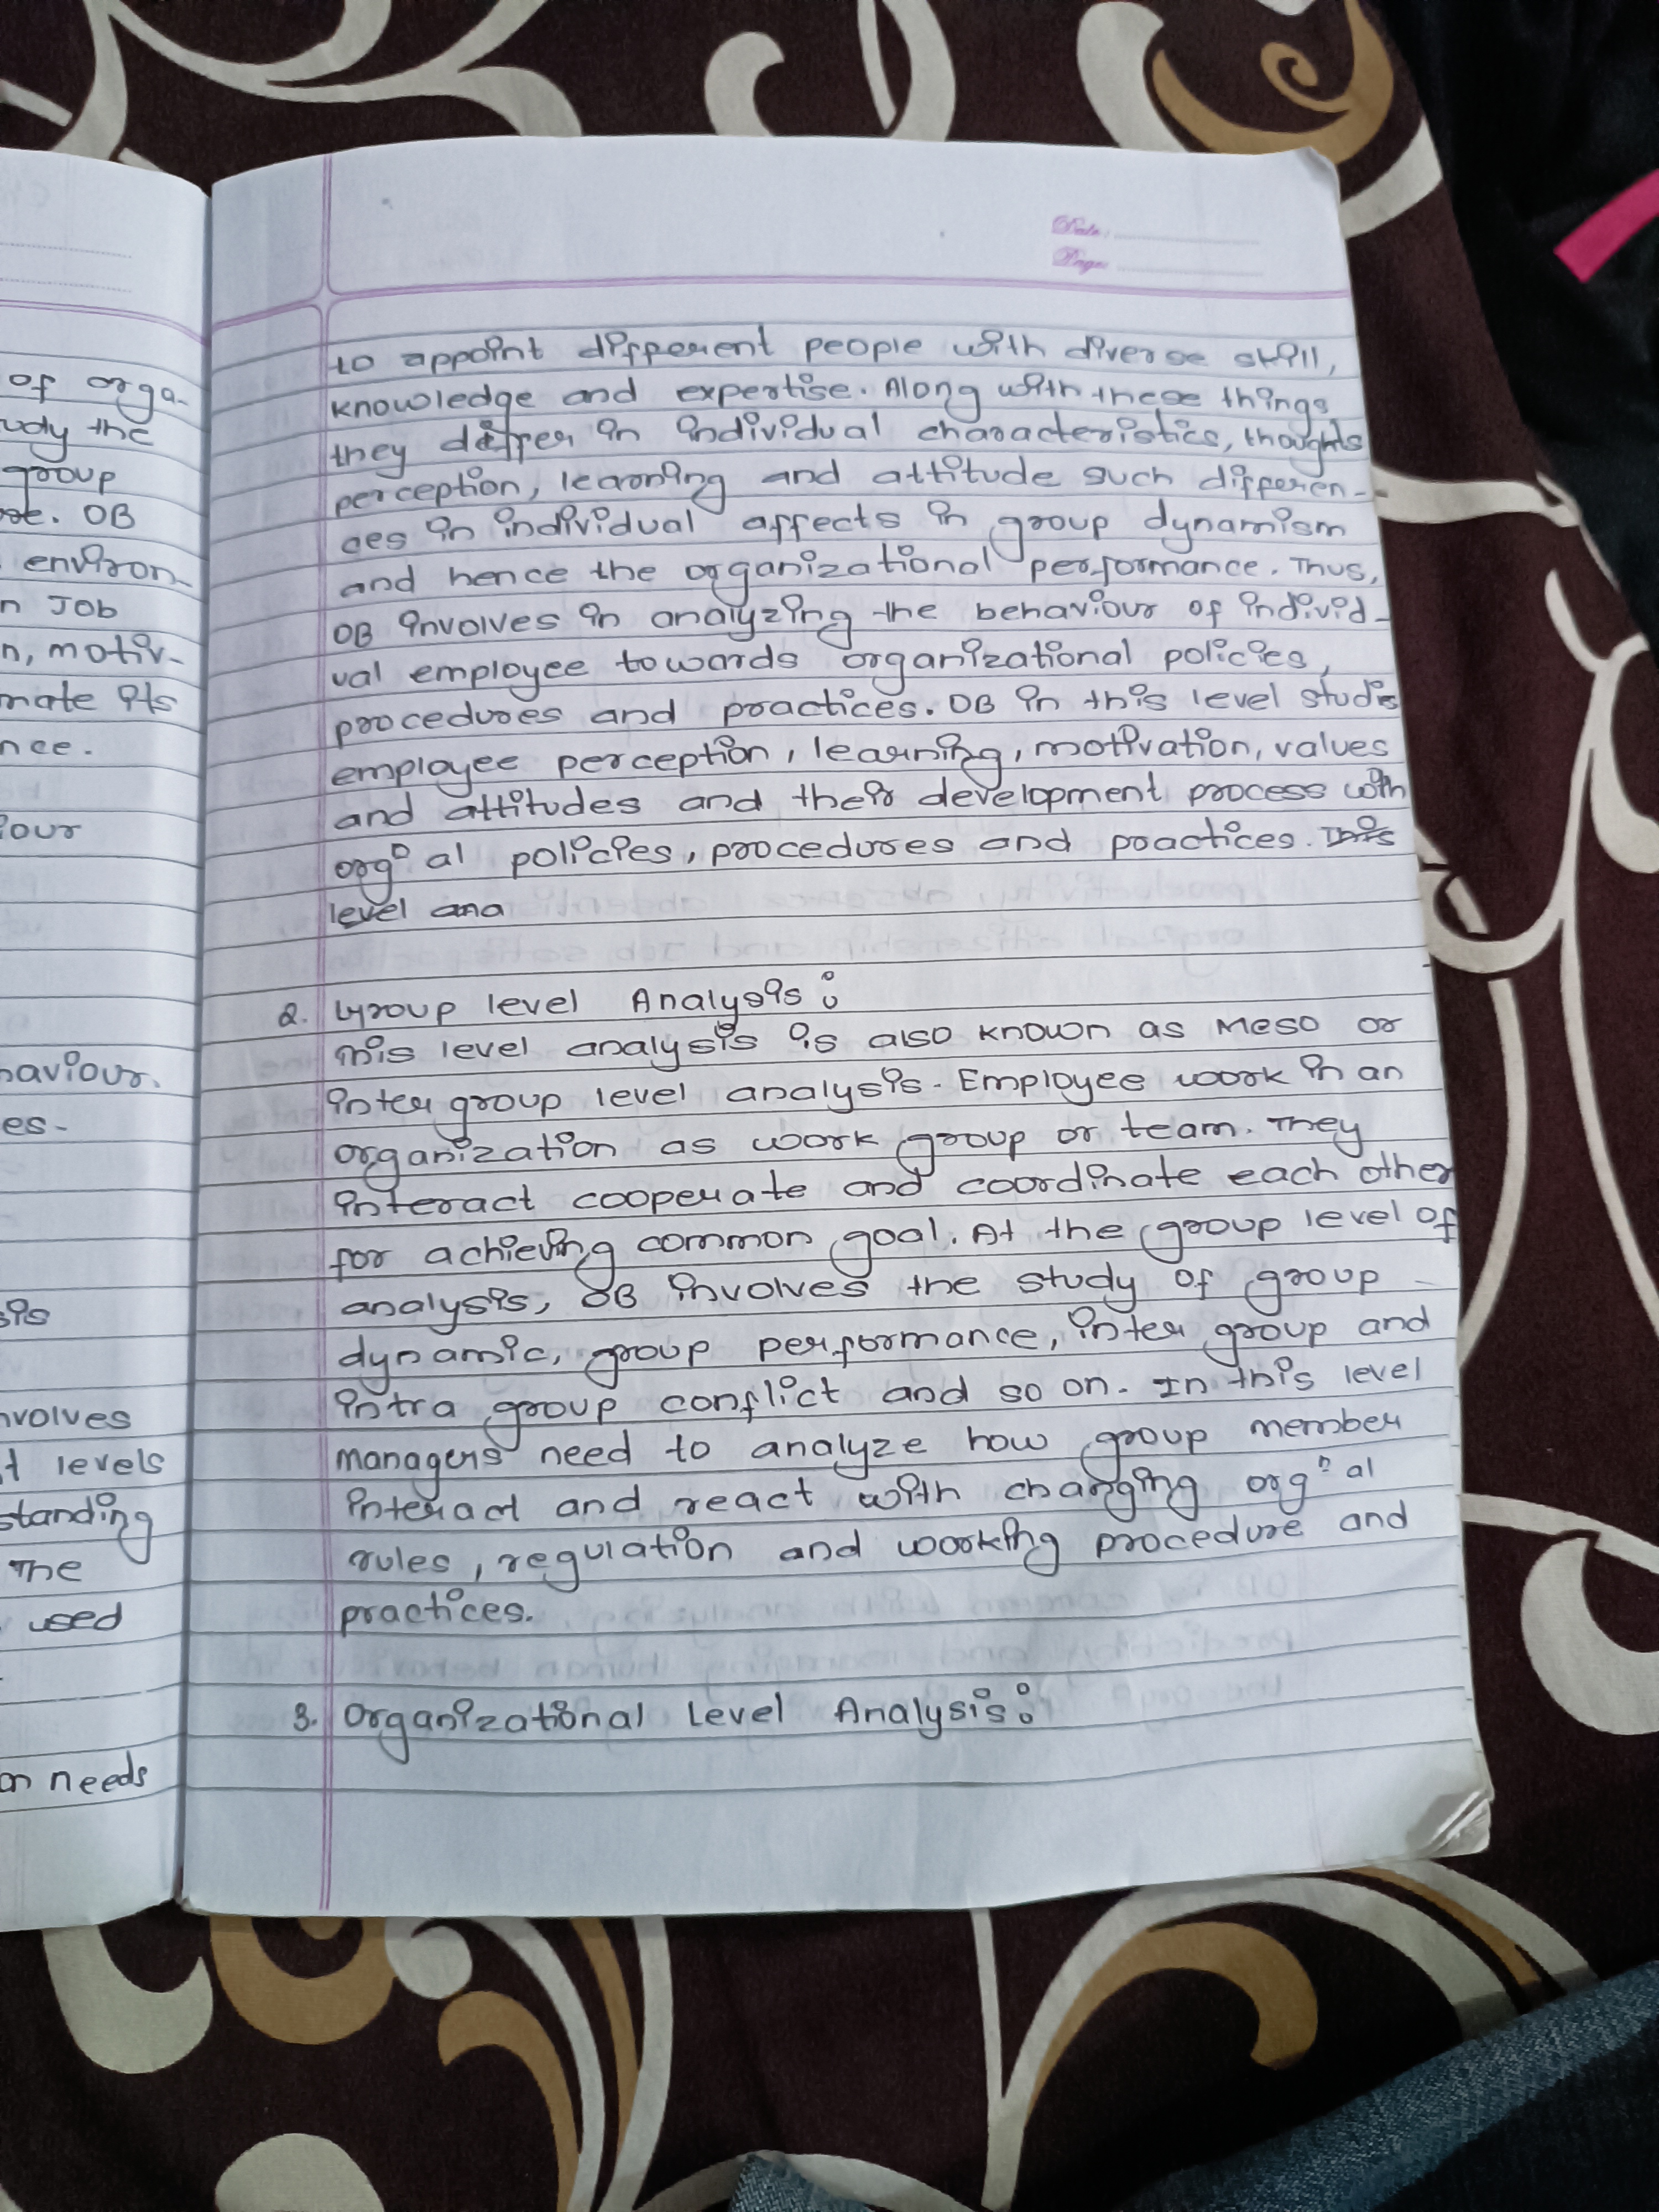 of orga-
udy the
group
OB
environ-
n Job
n, motiv-
mate its
nce.
iour
haviour.
es-
sis
nvolves
t levels
standing
The
used
on needs
Date:
Page:
to appoint different people with diverse skill,
knowledge and expertise. Along with these things
they differ in individual characteristics, thoughts
perception, learning and attitude such differen-
ces in individual affects in group dynamism
and hence the organizational performance. Thus,
OB involves in analyzing the behaviour of individ-
ual employee towards organizational policies,
procedures and practices. OB in this level studis
employee perception, learning, motivation, values
and attitudes and their development process with
orgⁿal policies, procedures and practices. This
level ana
2. Group level Analysis:
This level analysis is also known as Meso or
inter group level analysis. Employee work in an
organization as work group or team. They
interact cooperate and coordinate each other
for achieving common goal. At the group level of
analysis, OB involves the study of group
dynamic, group performance, inter group and
intra group conflict and so on. In this level
managers need to analyze how group member
interact and react with changing orgⁿal
rules, regulation and working procedure and
practices.
3. Organizational Level Analysis: